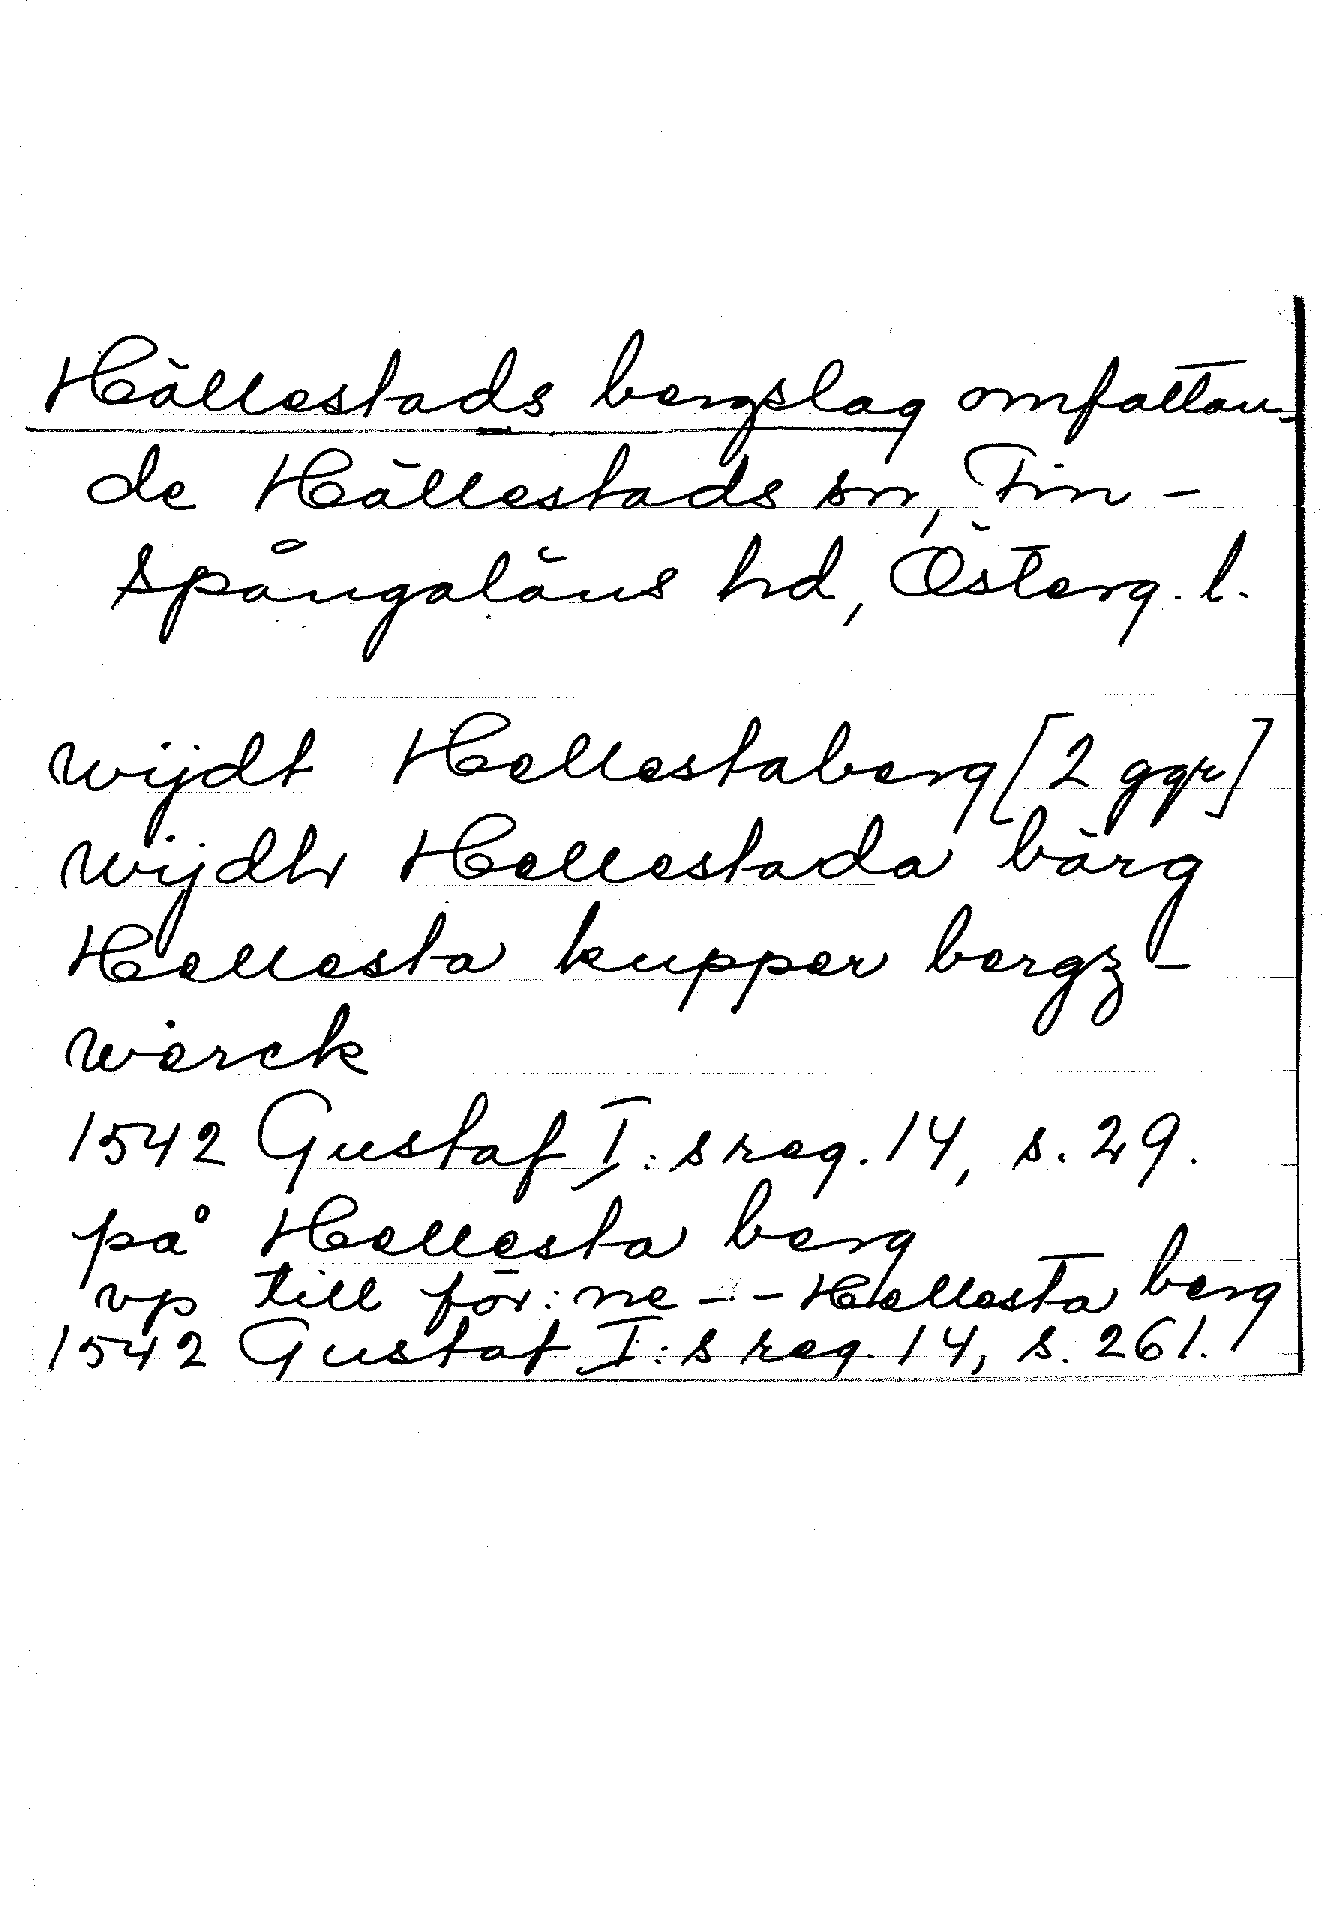 Hällestads bergslag omfattan-
de Hällestads sn, Fin-
spångaläns hd, Österg. l.
wijdt Hellestaberg [2 ggr]
wijdh Hellestada bärg
Hellesta kupper bergz-
werck
1542 Gustaf I:s reg. 14, s. 29.
på Hellesta berg
vp till för:ne -- Hellesta berg
1542 Gustaf I:s reg. 14, s. 261.